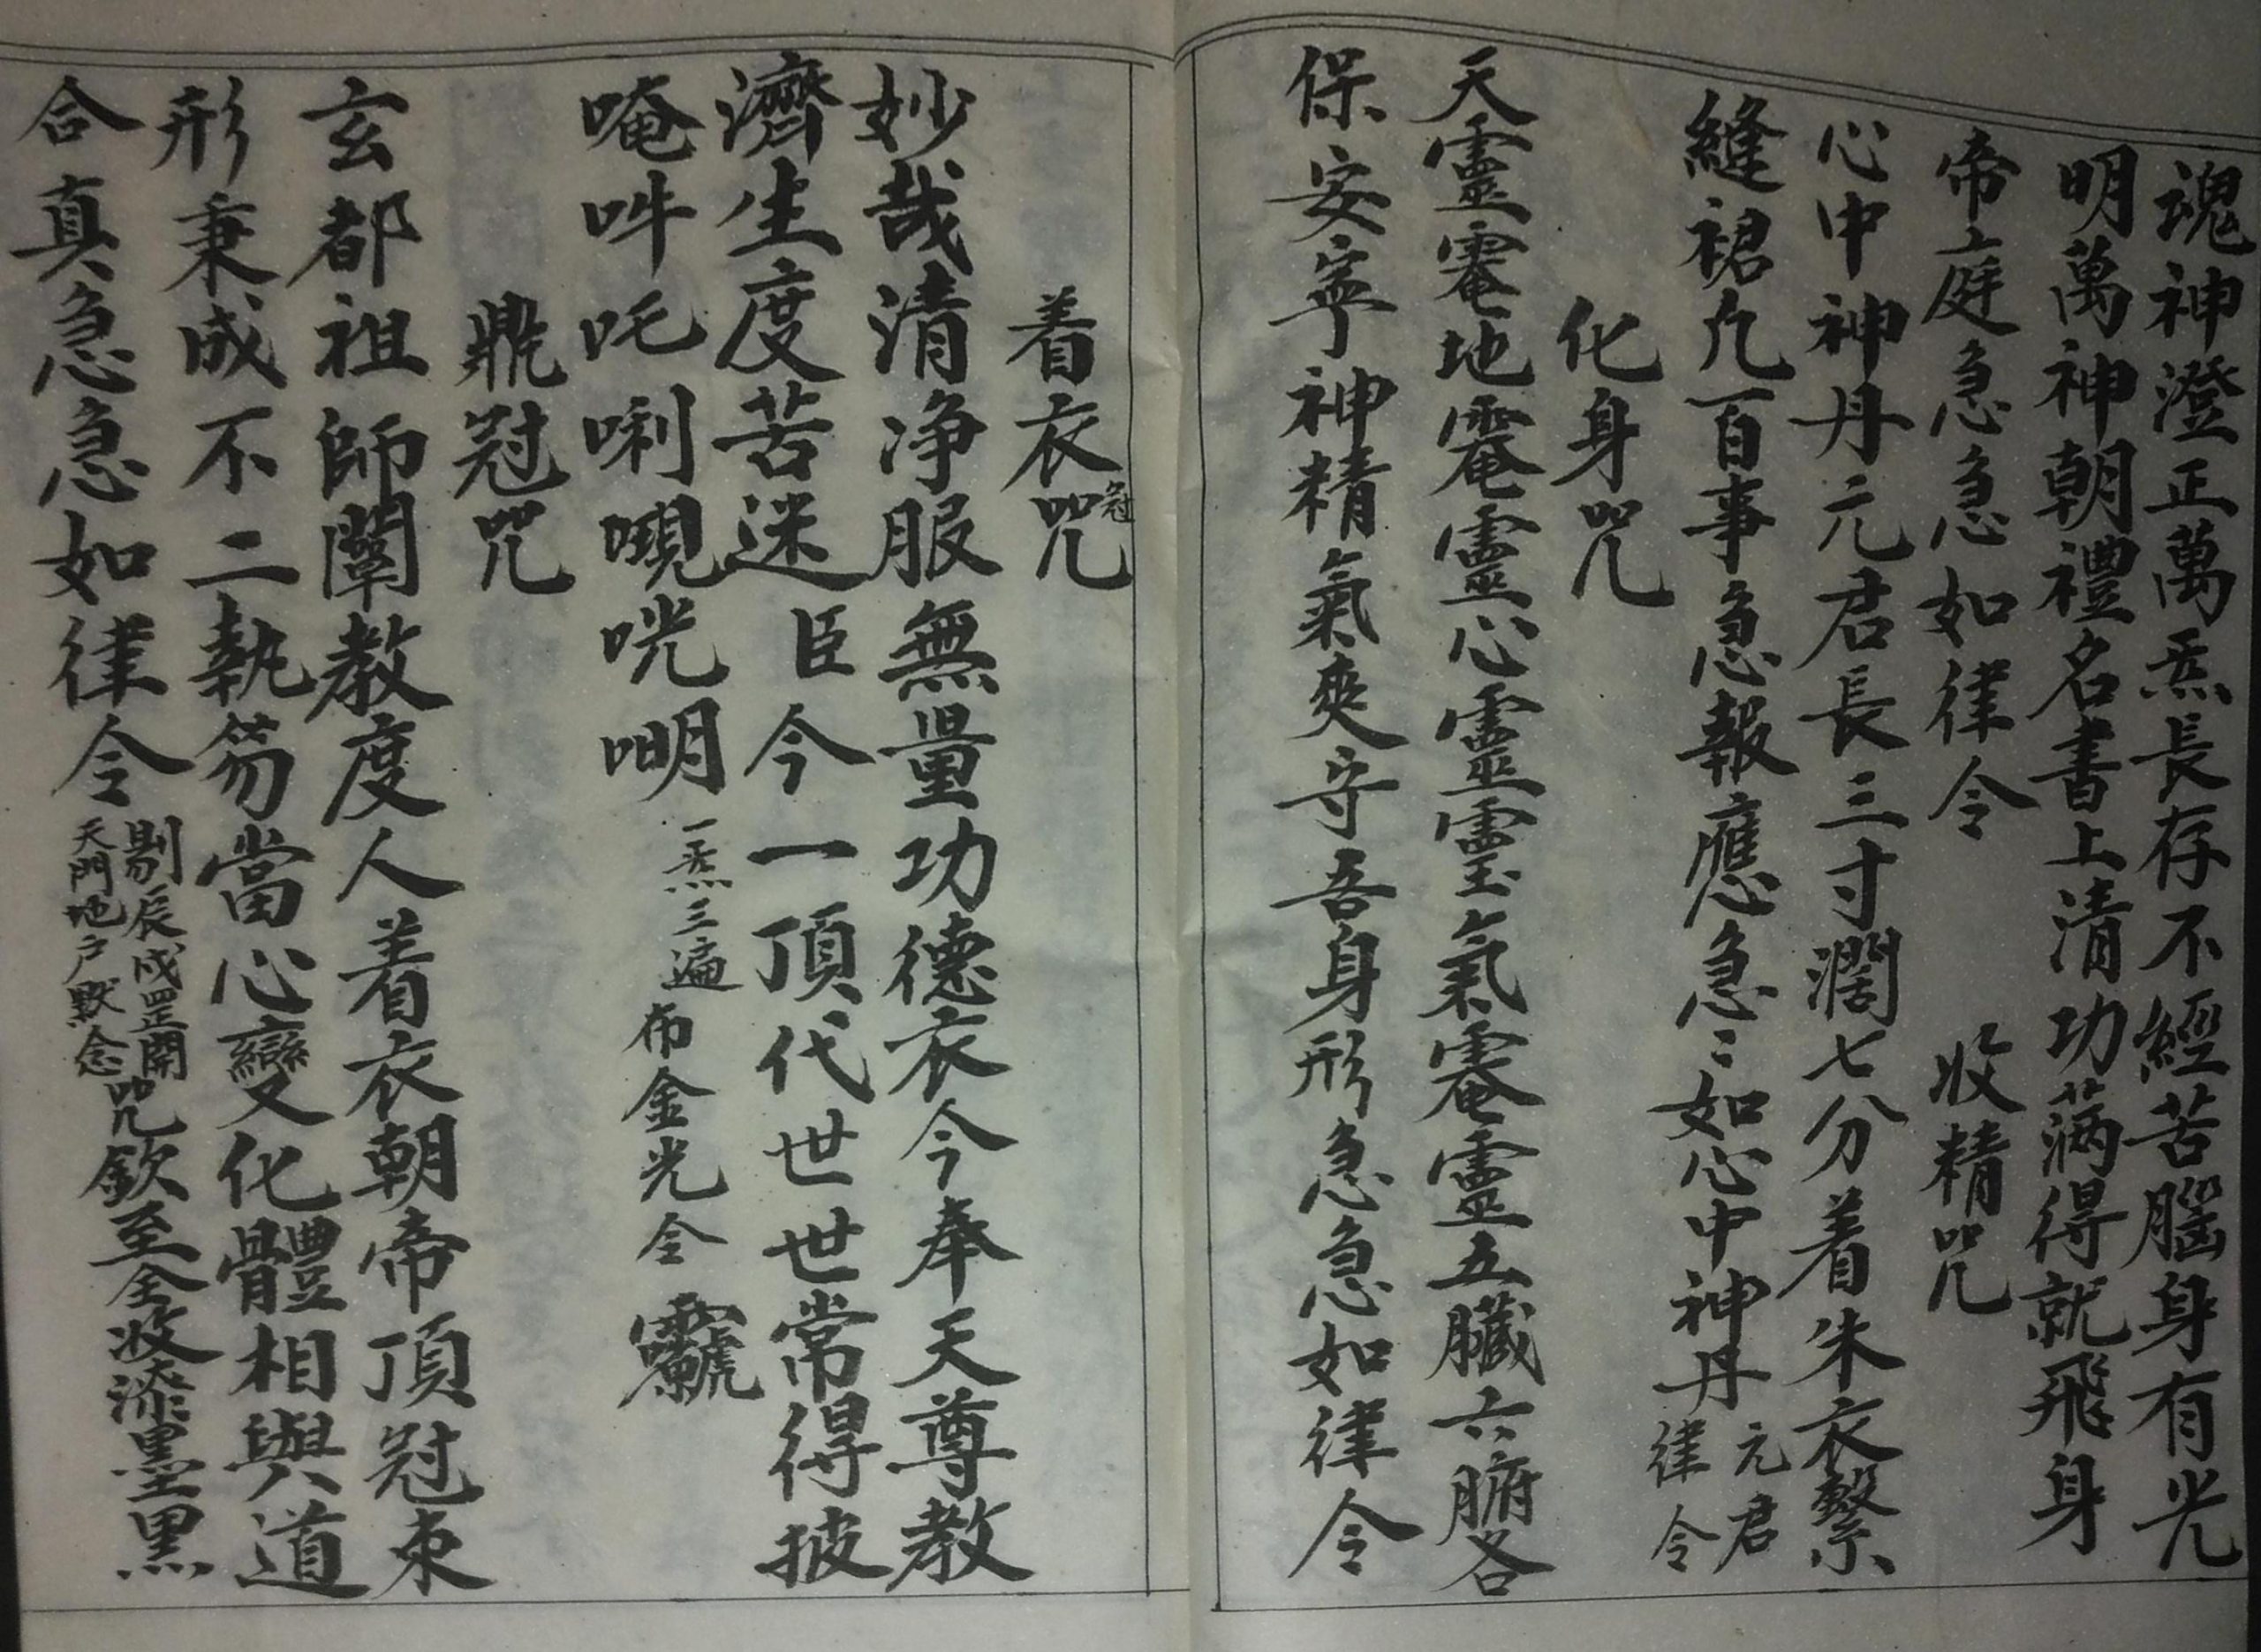 魂神澄正萬炁長存不經苦腦身有光
明萬神朝禮名書上清功滿得就飛身
帝庭急急如律令　收精咒
心中神丹元君長三寸濶七分着朱衣繫
縫裙九百事急報應急〻如心中神丹元君律令
化身咒
天靈奄地奄靈心靈靈氣奄靈五臟六腑各
保安寧神精氣爽守吾身形急急如律令
着衣咒
冠
妙哉清净服無量功德衣今奉天尊教
濟生度苦迷臣今一頂代世世常得披
唵吽吒唎㖠咣明一炁三遍布金光全
冠咒
玄都祖師闡教度人着衣朝帝頂冠束
形秉成不二執笏當心變化體相與道
合真急急如律令剔辰戌罡開
天門地户默念
咒欽至全收漆墨黑